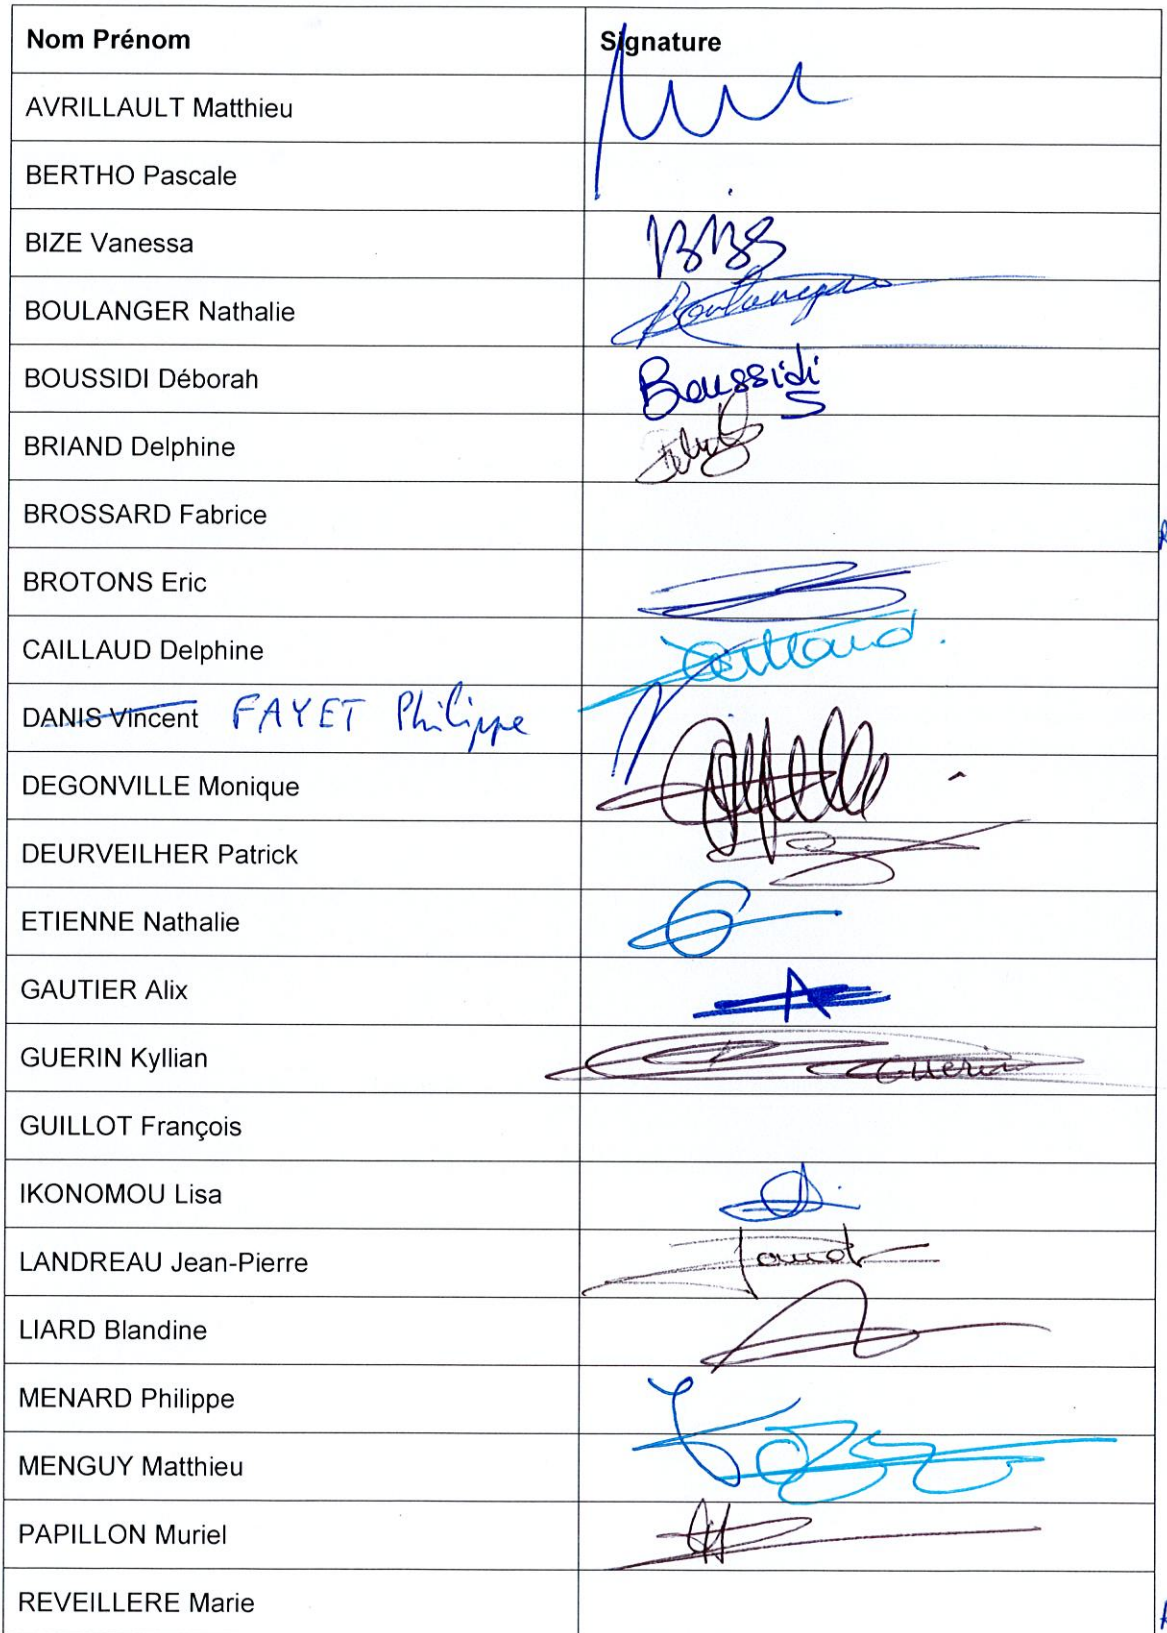 Nom Prénom Signature
AVRILLAULT Matthieu
BERTHO Pascale
BIZE Vanessa
BOULANGER Nathalie Boulanger
BOUSSIDI Déborah Boussidi
BRIAND Delphine
BROSSARD Fabrice
BROTONS Eric
CAILLAUD Delphine Caillaud
DANIS Vincent FAYET Philippe
DEGONVILLE Monique
DEURVEILHER Patrick
ETIENNE Nathalie
GAUTIER Alix A
GUERIN Kyllian Guerin
GUILLOT François
IKONOMOU Lisa
LANDREAU Jean-Pierre
LIARD Blandine
MENARD Philippe
MENGUY Matthieu
PAPILLON Muriel
REVEILLERE Marie